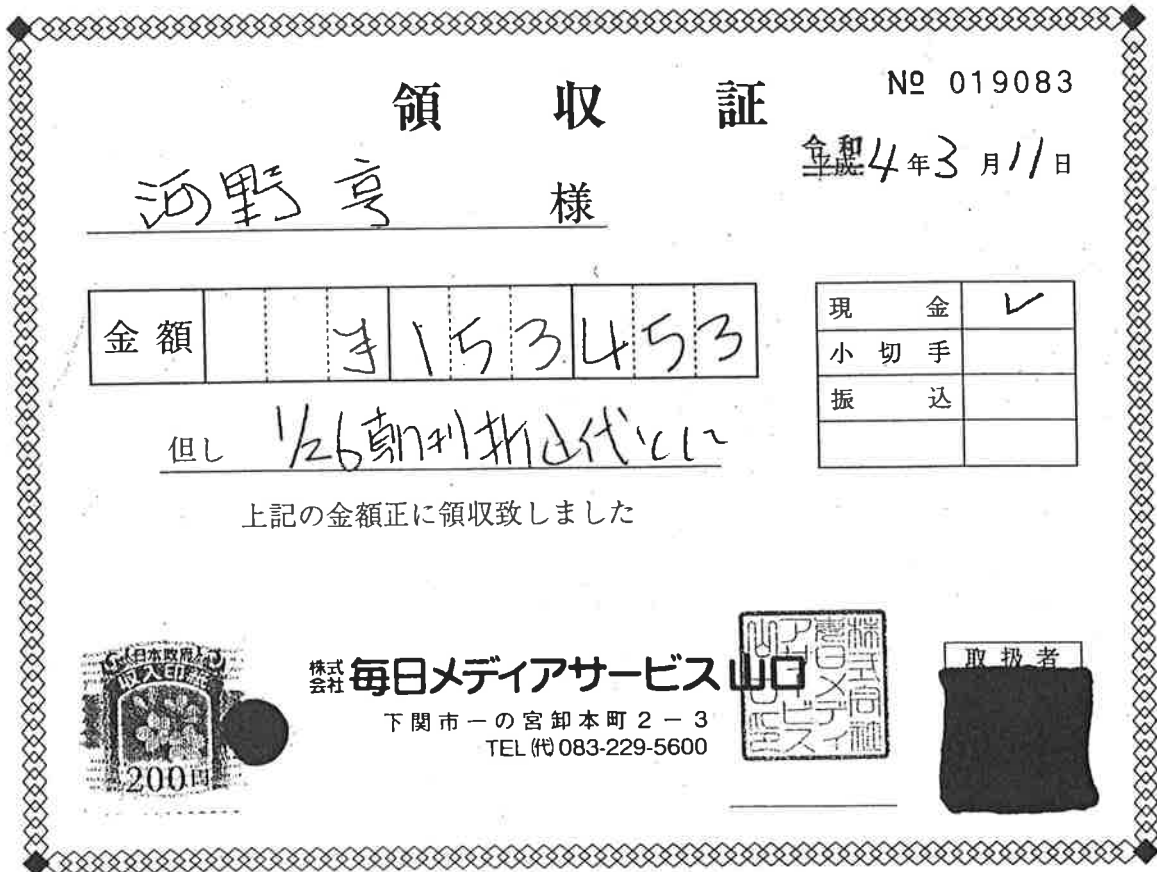 領収証
№ 019083
令和
平成 4年3月11日
河野 亨 様
金額 ¥153453
現金 ✓
小切手
振込
但し 1/26朝刊折込代として
上記の金額正に領収致しました
日本政府
収入印紙
200円
株式会社 毎日メディアサービス山口
下関市一の宮卸本町2-3
TEL(代)083-229-5600
取扱者